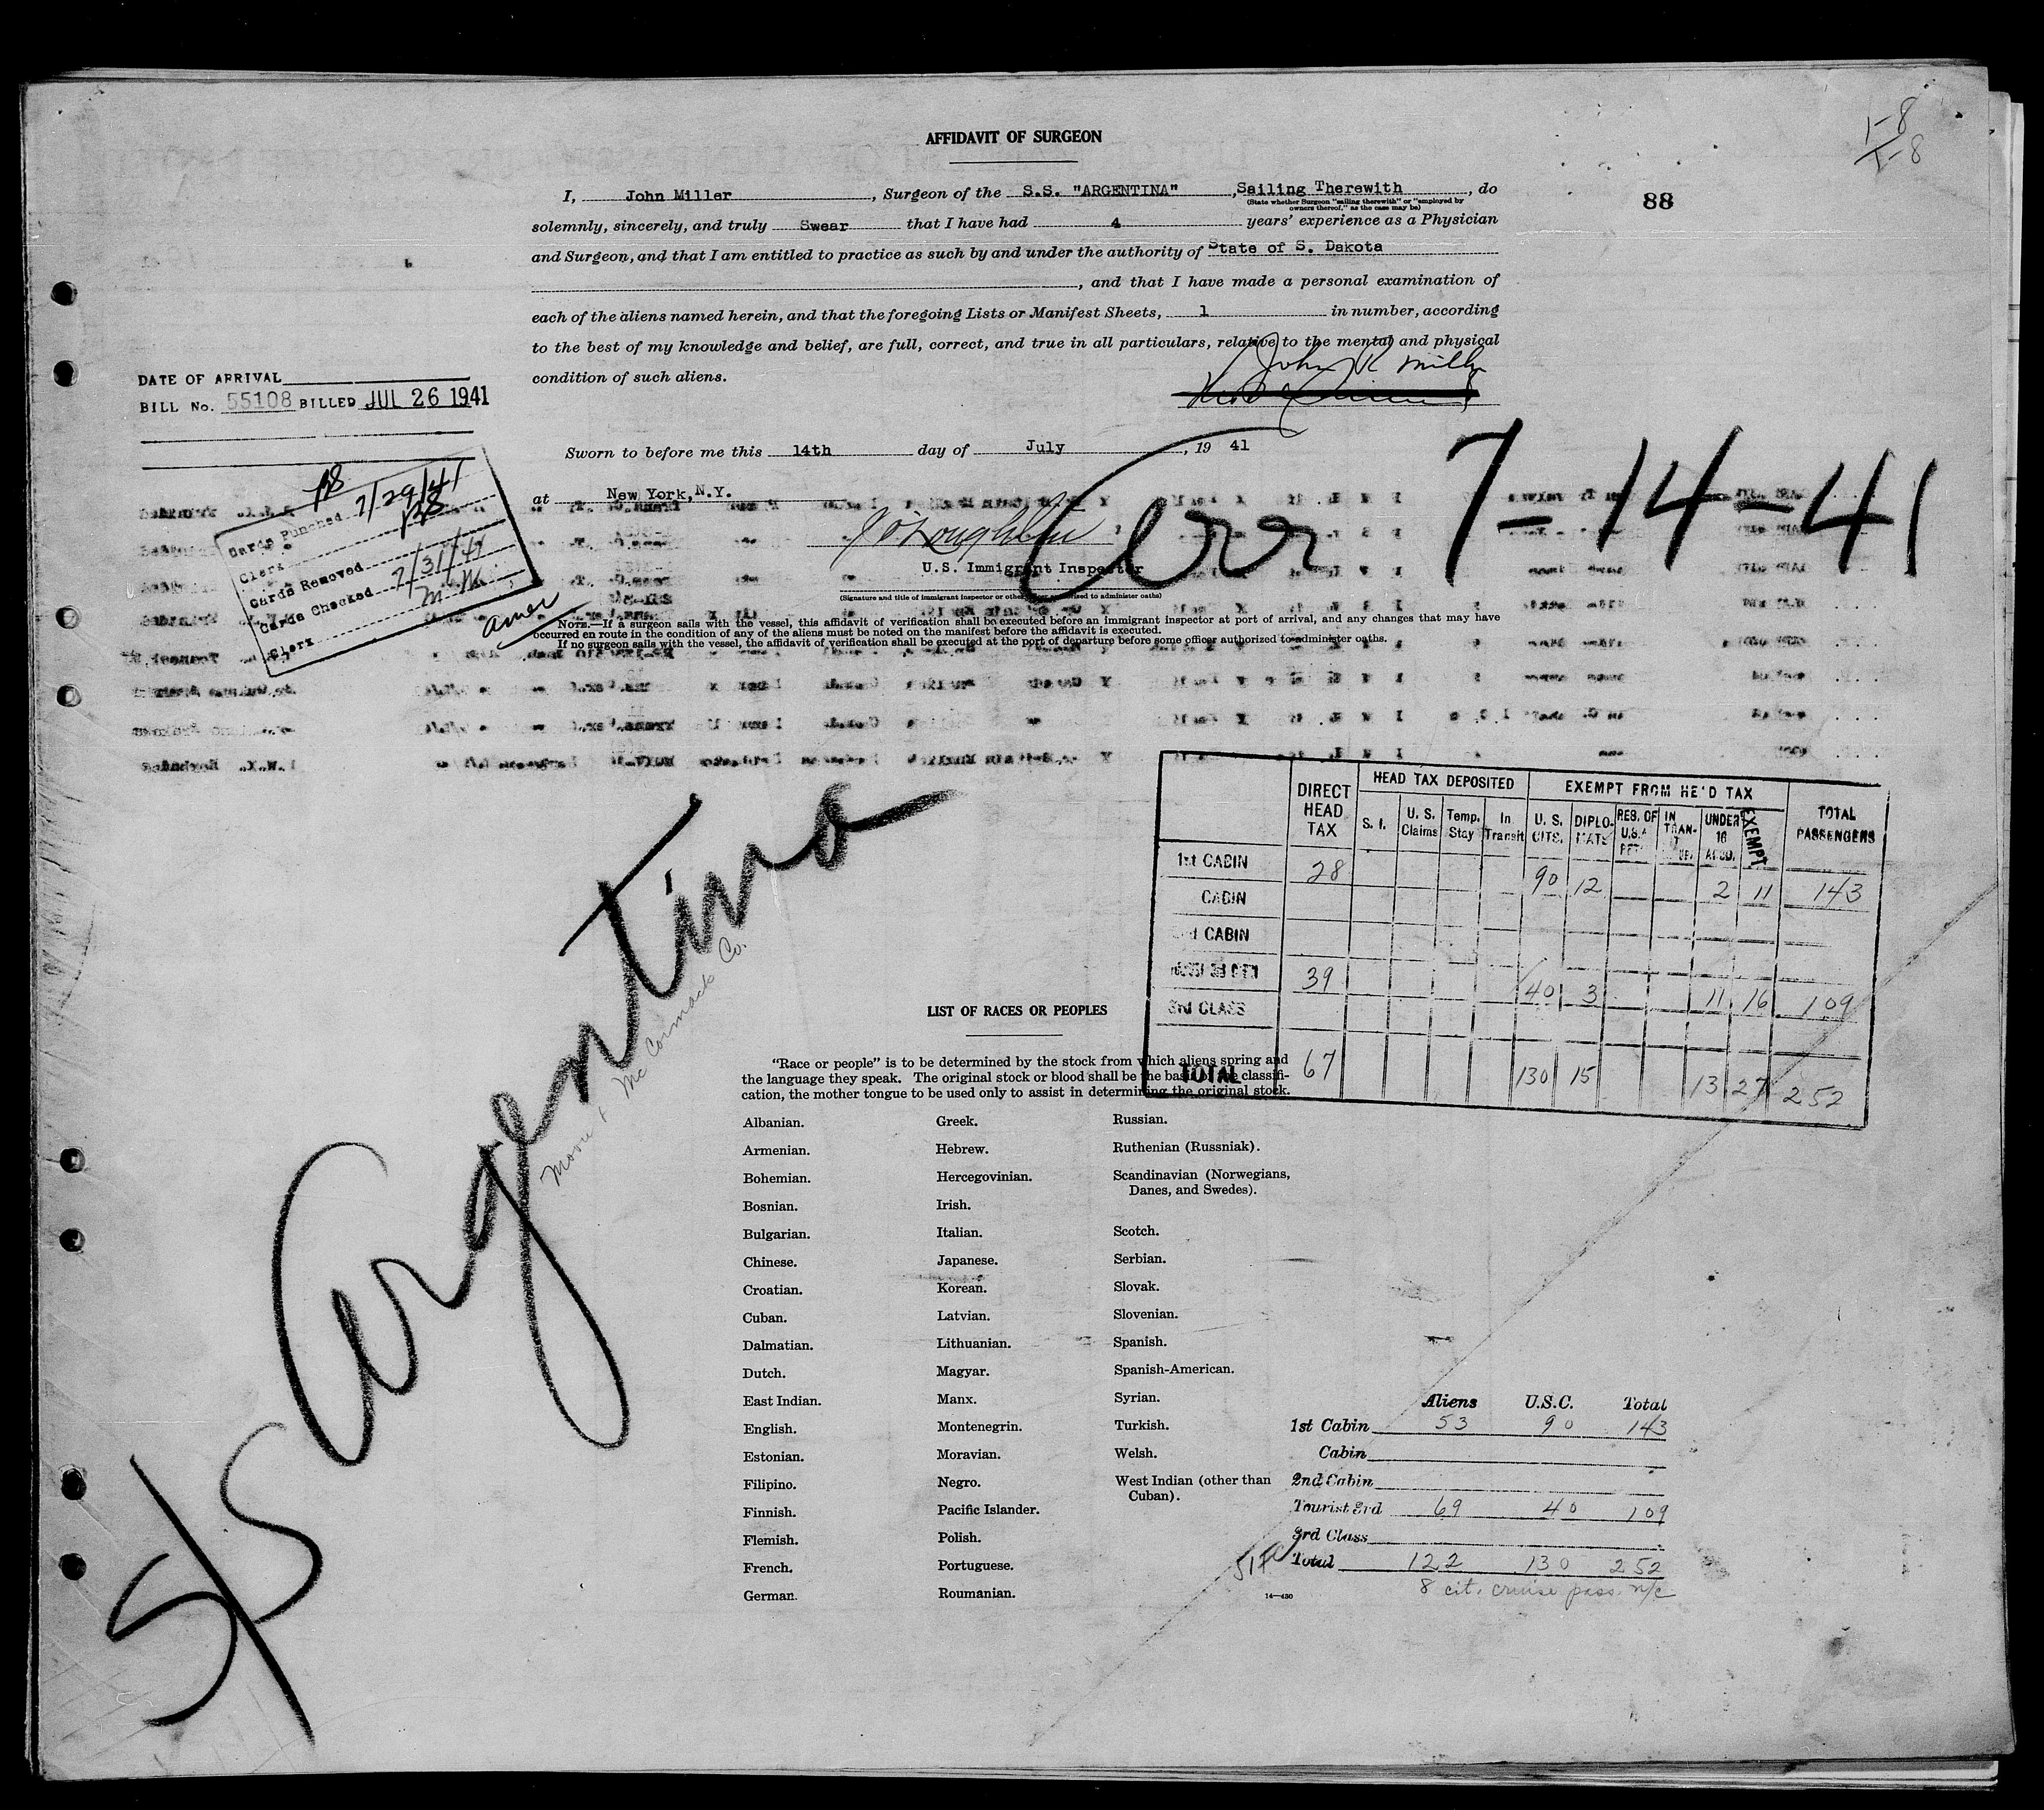 1-8
1-8
AFFIDAVIT OF SURGEON
88
I, John Miller, Surgeon of the S.S. "ARGENTINA", Sailing Therewith, do
(State whether Surgeon "sailing therewith" or "employed by
owners thereof," as the case may be)
solemnly, sincerely, and truly Swear that I have had 4 years' experience as a Physician
and Surgeon, and that I am entitled to practice as such by and under the authority of State of S. Dakota
, and that I have made a personal examination of
each of the aliens named herein, and that the foregoing Lists or Manifest Sheets, 1 in number, according
to the best of my knowledge and belief, are full, correct, and true in all particulars, relative to the mental and physical
condition of such aliens.
John R Miller
DATE OF ARRIVAL
BILL No. 55108 BILLED JUL 26 1941
Sworn to before me this 14th day of July, 19 41
at New York, N.Y.
J O'Loughlin
U.S. Immigrant Inspector
(Signature and title of immigrant inspector or other officer authorized to administer oaths)
Arr 7-14-41
Cards Punched 7/29/41
Clerk
Cards Removed
Cards Checked 7/31/41
Clerk M.M.
amer
NOTE.—If a surgeon sails with the vessel, this affidavit of verification shall be executed before an immigrant inspector at port of arrival, and any changes that may have
occurred en route in the condition of any of the aliens must be noted on the manifest before the affidavit is executed.
If no surgeon sails with the vessel, the affidavit of verification shall be executed at the port of departure before some officer authorized to administer oaths.
DIRECT HEAD TAX HEAD TAX DEPOSITED EXEMPT FROM HE'D TAX TOTAL PASSENGERS
S. I. U. S. Claims Temp. Stay In Transit U. S. CITS. DIPLOMATS RES. OF U.S.A. RET. IN TRANSIT UNDER 16 EXEMPT
1st CABIN 28 90 12 2 11 143
CABIN
2nd CABIN
39 40 3 11 16 109
3rd CLASS
TOTAL 67 130 15 13 27 252
S/S Argentina
Moore & McCormack Co.
LIST OF RACES OR PEOPLES
"Race or people" is to be determined by the stock from which aliens spring and
the language they speak. The original stock or blood shall be the basis of the classifi-
cation, the mother tongue to be used only to assist in determining the original stock.
Albanian.
Armenian.
Bohemian.
Bosnian.
Bulgarian.
Chinese.
Croatian.
Cuban.
Dalmatian.
Dutch.
East Indian.
English.
Estonian.
Filipino.
Finnish.
Flemish.
French.
German.
Greek.
Hebrew.
Hercegovinian.
Irish.
Italian.
Japanese.
Korean.
Latvian.
Lithuanian.
Magyar.
Manx.
Montenegrin.
Moravian.
Negro.
Pacific Islander.
Polish.
Portuguese.
Roumanian.
Russian.
Ruthenian (Russniak).
Scandinavian (Norwegians,
Danes, and Swedes).
Scotch.
Serbian.
Slovak.
Slovenian.
Spanish.
Spanish-American.
Syrian.
Turkish.
Welsh.
West Indian (other than
Cuban).
Aliens U.S.C. Total
1st Cabin 53 90 143
Cabin
2nd Cabin
Tourist 3rd 69 40 109
3rd Class
Total 122 130 252
8 cit. cruise pass. n/c
14—430